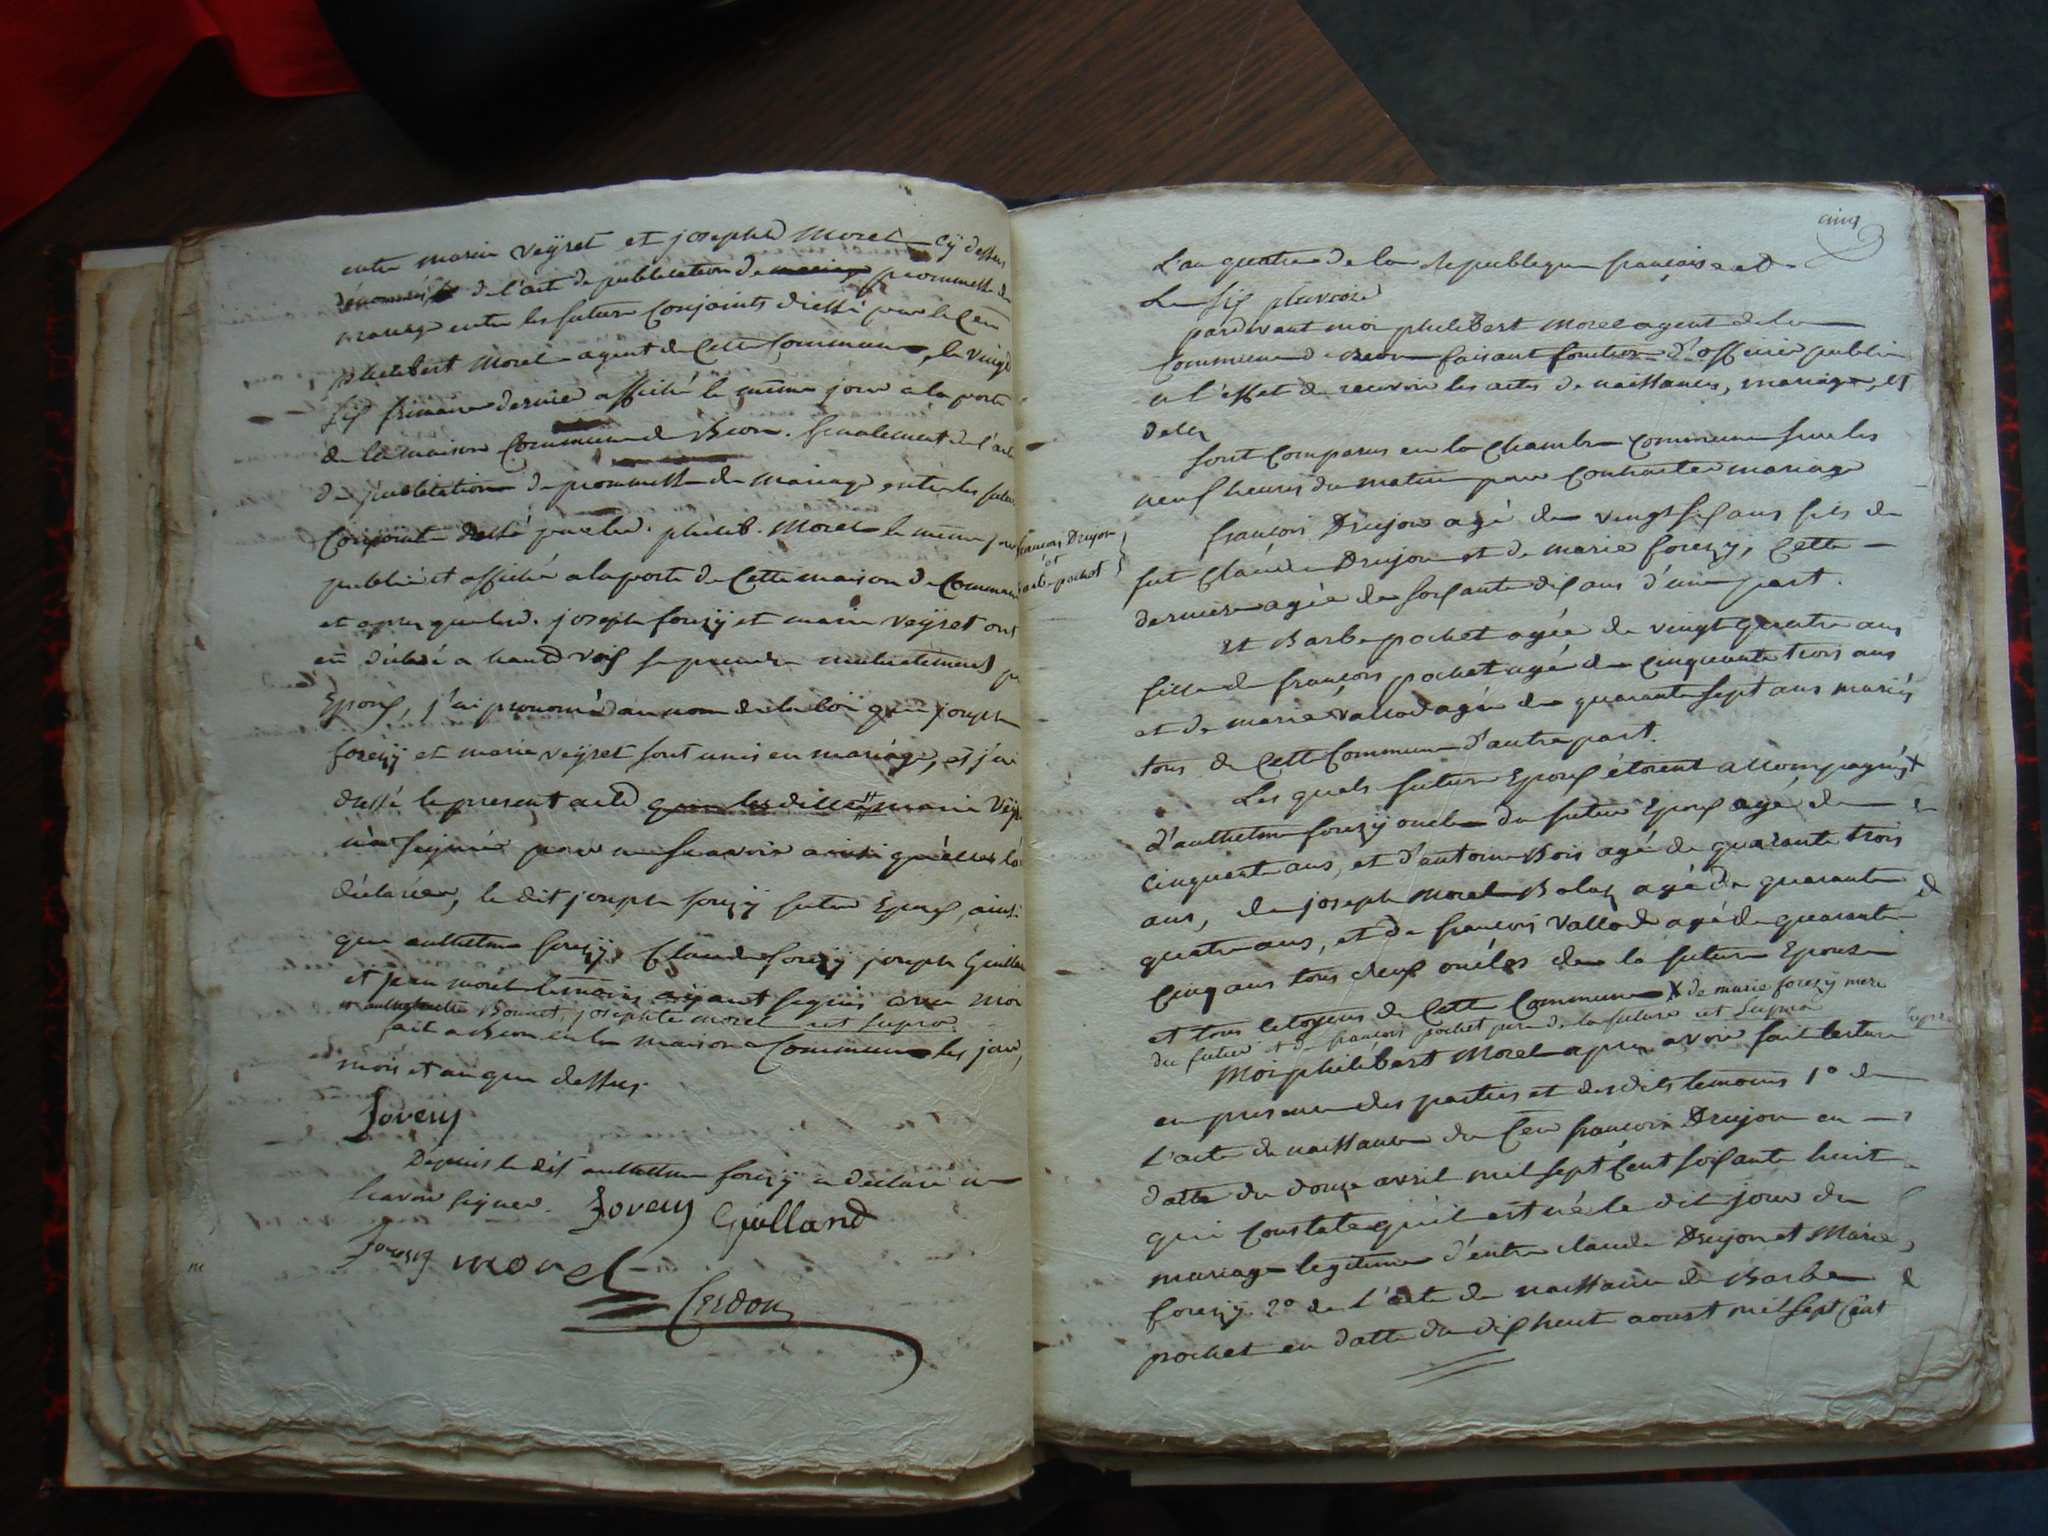 entre marie veÿret et josephte Morel cÿ dessus
dénommés de l'acte de publication de mariage promesse de
mariage entre les futurs Conjoints dressé par le Cen
philibert Morel agent de Cette Commune, le vingt
six frimaire dernier affiché le même jour a la porte
de la maison Commune de Beon. finalement de l'acte
de publication de promesse de mariage entre les futurs
Conjoints dressé par led. philib. Morel le même jour
publié et affiché a la porte de Cette maison de Commune
et apres que led. joseph forezÿ et marie veÿret ont
eu déclaré a haute voix se prendre mutuellement pr
Epoux, j'ai prononcé au nom de la loi que joseph
forezÿ et marie veÿret sont unis en mariage, et j'ai
dressé le present acte que lesdittes marie Veÿret
n'a signé pour ne scavoir ainsi qu'elles l'a
déclarée, le dit joseph forezÿ futur Epoux, ainsi
que anthelme forezÿ, Claude forezÿ joseph Guilland
et jean morel temoins aÿant signés avec moi
Bonnet, josephte morel ut supra
fait a Beon en la maison Commune les jour,
mois et an que dessus.
Foverÿ
Depuis le dit anthelme forezÿ a declaré ne
scavoir signer. Foverÿ Guilland
Forezy morel
Cerdon
cinq
L'an quatre de la Republique française et
Le six pluviose
pardevant moi philibert Morel agent de la
Commune de Beon faisant fonction d'officier public
a l'effet de recevoir les actes de naissances, mariage, et
deces
Sont Comparus en la Chambre Commune sur les
neuf heures du matin pour Contracter mariage
françois Drujon
et
barbe pochet
françois Drujon agé de vingt six ans fils de
fut Claude Drujon et de marie forezy, Cette
derniere agée de soixante dix ans d'une part.
Et Barbe pochet agée de vingt quatre ans
fille de françois pochet agé de cinquante trois ans
et de marie Vallod agée de quarante sept ans mariés
tous de Cette Commune d'autre part.
Les quels futurs Epoux étoient accompagnés
d'anthelme forezÿ oncle du futur Epoux agé de
cinquante ans, et d'antoine Bois agé de quarante trois
ans, de joseph Morel Bolaz agé de quarante
quatre ans, et de françois Vallod agé de quarante
Cinq ans tous deux oncles de la future Epouse
et tous citoyens de Cette Commune X de marie forezy mere
du futur et de françois pochet pere de la future ut Supra
Moi philibert Morel apres avoir fait lecture
en presence des parties et desdits temoins 1° de
L'acte de naissance du Cen françois Drujon en
datte du douze avril mil sept Cent soixante huit
qui Constate qu'il est né le dit jour du
mariage legitime d'entre claude Drujon et Marie
forezy. 2° de l'acte de naissance de Barbe
pochet en datte du dix heut aoust mil sept Cent